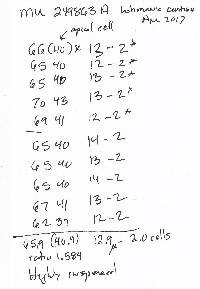 MU 249863 A Lohmann's coaties
Apr 2017
apical cell
66 (40) * 12 - 2 *
65 40 12 - 2 *
65 40 13 - 2 *
70 43 13 - 2 *
69 41 12 - 2 *
65 40 14 - 2
65 40 13 - 2
65 40 14 - 2
67 41 13 - 2
62 37 12 - 2
65.9 (40.9) 12.9 - 2.0 cells
ratio 1.584